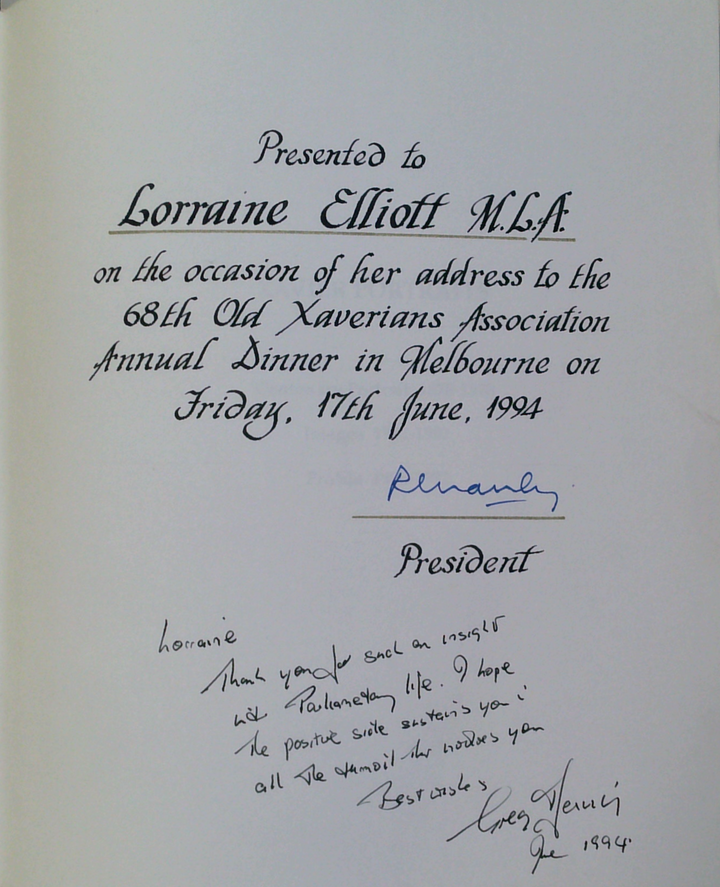 Presented to
Lorraine Elliott M.L.A.
on the occasion of her address to the
68th Old Xaverians Association
Annual Dinner in Melbourne on
Friday, 17th June, 1994
President
Lorraine
Thank you for such an insight
into Parliamentary life. I hope
the positive side sustains you i
all the turmoil that
you
Best wishes
Greg
June 1994